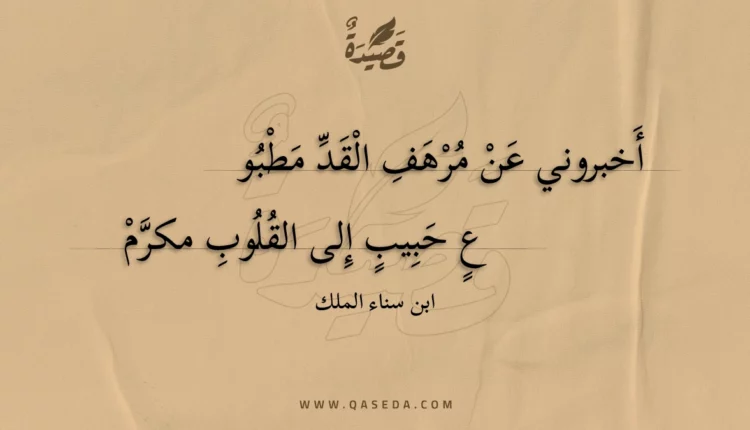 قَصِيدَةٌ
أَخبروني عَنْ مُرْهَفِ الْقَدِّ مَطْبُو
عٍ حَبِيبٍ إِلى القُلُوبِ مكرَّمْ
ابن سناء الملك
WWW.QASEDA.COM